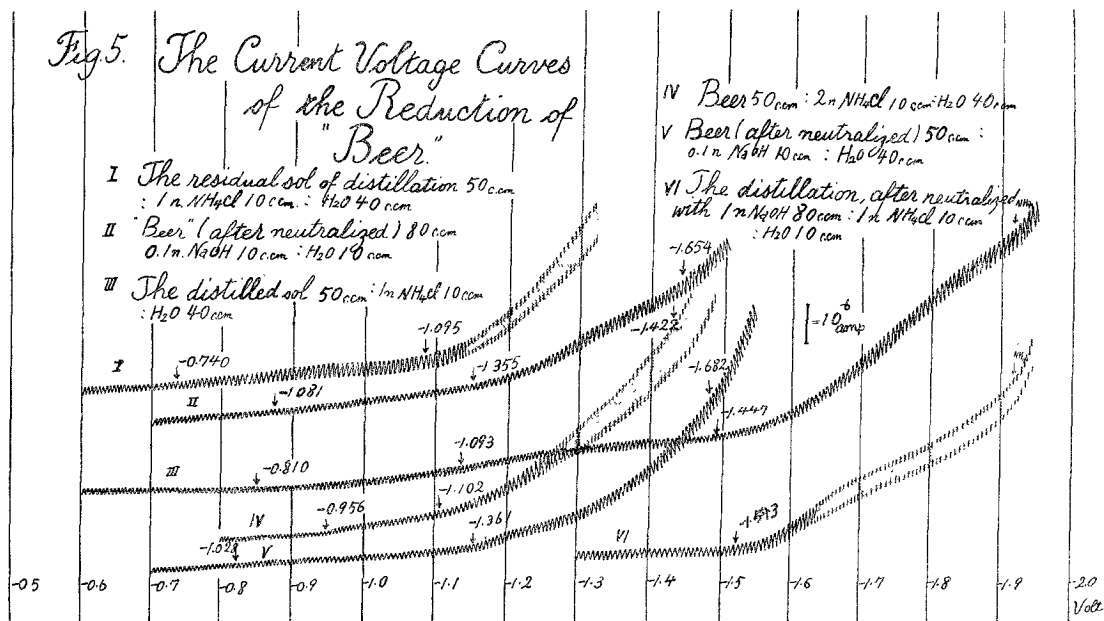 Fig.5. The Current Voltage Curves
of the Reduction of
"Beer."
I The residual sol of distillation 50 c.cm
: 1n NH4Cl 10 c.cm : H2O 40 c.cm
II "Beer" (after neutralized) 80 c.cm
0.1n. NaOH 10 c.cm : H2O 10 c.cm
III The distilled sol 50 c.cm : 1n NH4Cl 10 c.cm
: H2O 40 c.cm
IV Beer 50 c.cm : 2n NH4Cl 10 c.cm : H2O 40 c.cm
V Beer (after neutralized) 50 c.cm :
0.1n NaOH 10 c.cm : H2O 40 c.cm
VI The distillation, after neutralized
with 1n NaOH 80 c.cm : 1n NH4Cl 10 c.cm
: H2O 10 c.cm
-1.654
=10^-6 amp
-1.095
-1.422
-0.740
-1.355
-1.682
I
-1.081
II
-1.447
-1.093
III
-0.810
-1.102
-0.956
IV
-1.361
-1.028
V
VI
-0.5 -0.6 -0.7 -0.8 -0.9 -1.0 -1.1 -1.2 -1.3 -1.4 -1.5 -1.6 -1.7 -1.8 -1.9 -2.0
Volt